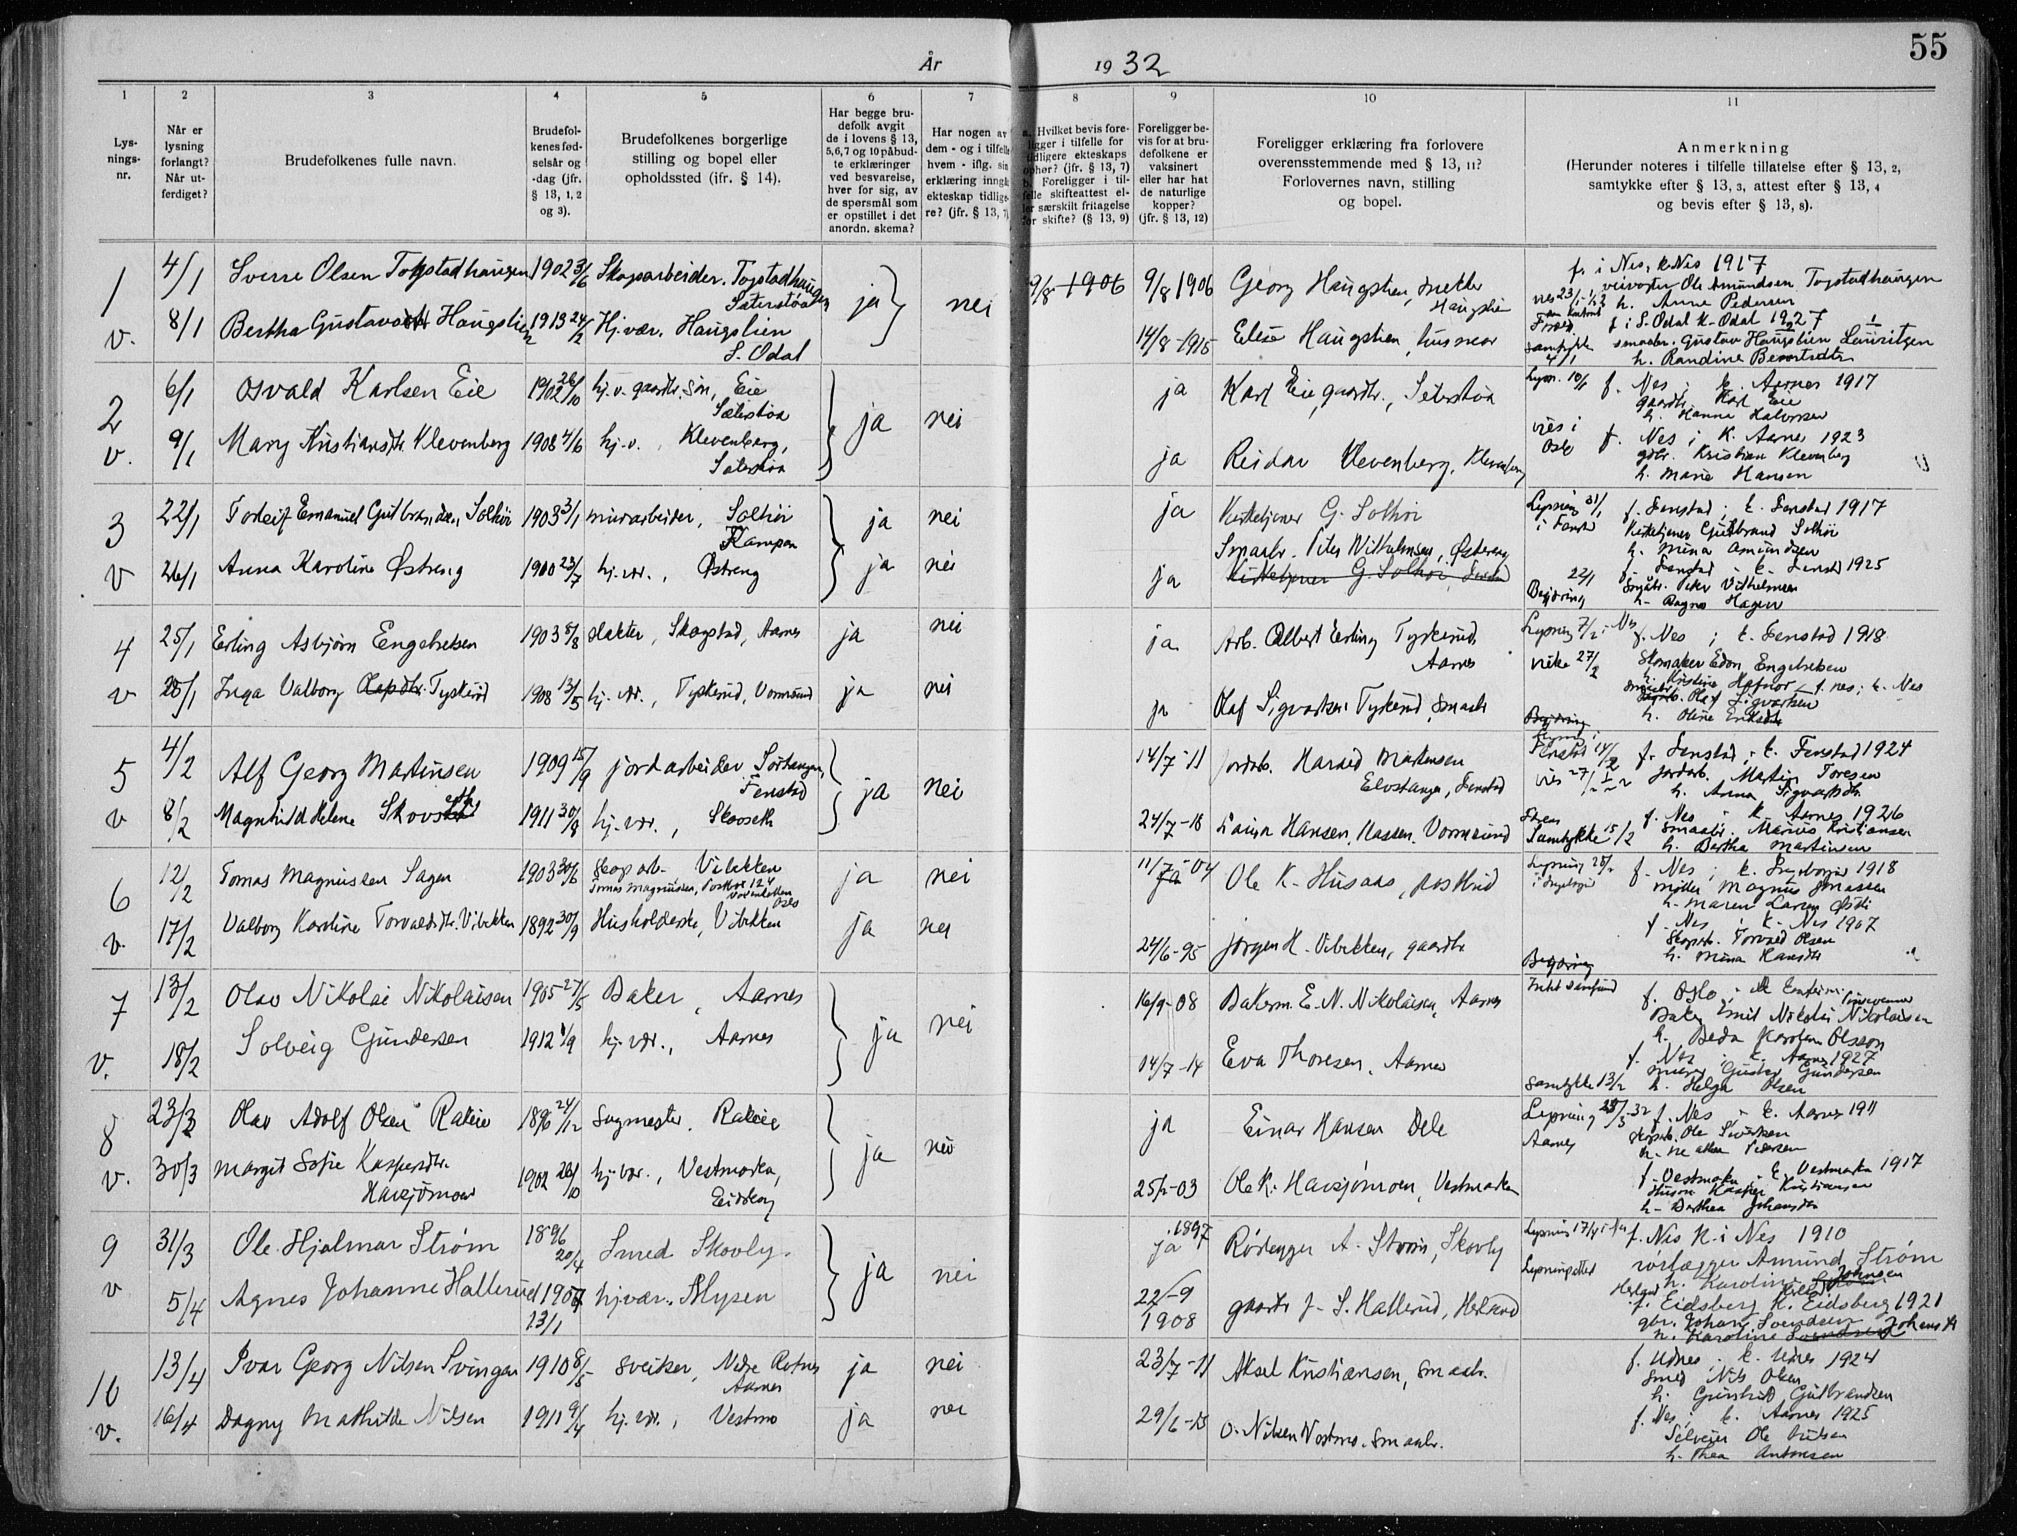 55
År 1932
1 2 3 4 5 6 7 8 9 10 11
Lys-
nings-
nr.
Når er
lysning
forlangt?
Når ut-
ferdiget?
Brudefolkenes fulle navn.
Brudefol-
kenes fød-
selsår og
-dag (jfr.
§ 13, 1, 2
og 3).
Brudefolkenes borgerlige
stilling og bopel eller
opholdssted (jfr. § 14).
Har begge bru-
defolk avgit
de i lovens § 13,
5,6,7 og 10 påbud-
te erklæringer
ved besvarelse,
hver for sig, av
de spørsmål som
er opstillet i det
anordn. skema?
Har nogen av
dem - og i tilfelle
hvem - iflg. sin
erklæring inngk
ekteskap tidlig-
re? (jfr. § 13, 7)
a. Hvilket bevis fore-
ligger i tilfelle for
tidligere ekteskaps
ophør? (jfr. § 13, 7)
b. Foreligger i til-
felle skifteattest el-
ler særskilt fritagelse
for skifte? (§ 13, 9)
Foreligger be-
vis for at bru-
defolkene er
vaksinert
eller har hat
de naturlige
kopper?
(jfr. § 13, 12)
Foreligger erklæring fra forlovere
overensstemmende med § 13, 11?
Forlovernes navn, stilling
og bopel.
Anmerkning
(Herunder noteres i tilfelle tillatelse efter § 13, 2,
samtykke efter § 13, 3, attest efter § 13, 4
og bevis efter § 13, 8).
1 4/1 Sverre Olsen Togstadhaugen 1902 3/6 Skogsarbeider. Togstadhaugen ja nei 9/8 1906 9/8 1906 Georg Haugslien, snekker
Sæterstøa Haugslien
f. i Nes, k. Nes 1917
veivogter Ole Amundsen Togstadhaugen
h. Anne Pedersen
v. 8/1 Bertha Gustavsdtr Haugslien 1913 24/2 Hj.vær. Haugslien
S. Odal
14/8-1915 Elise Haugslien, husmor
f. i S. Odal k. Odal 1927
Samtykke 4/1
smaabr. Gustav Haugslien Lauritzen
h. Randine
2 6/1 Osvald Karlsen Eie 1902 26/10 hj.v. gaardbr. søn, Eie
Sæterstøa
ja nei ja Karl Eie, gaardbr., Seterstøa
Lysn. 10/1 f. Nes; k. Aarnes 1917
gaardbr. Karl Eie
h. Hanna Halvorsen
v. 9/1 Mary Kristiansdtr. Klevenberg 1908 4/6 hj.v., Klevenberg,
Seterstøa
ja Reidar Klevenberg, Klevenberg
vies i Oslo
f. Nes; k. Aarnes 1923
gdbr. Kristian Klevenberg
h. Marie Hansen
3 22/1 Torleif Emanuel Gulbrandsen Solhøi 1903 3/1 murarbeider, Solhøi
Kampen
ja nei ja Kirketjener G. Solhøi
Lysning 31/1 i Fenstad
f. Fenstad; k. Fenstad 1917
Kirketjener Gulbrand Solhøi
h. Mina Amundsen
v 26/1 Anna Karoline Østreng 1900 23/7 hj.vær., Østreng ja nei ja
Smaabr. Peter Vilhelmsen, Østreng
Kirketjener G. Solhøi, Fenstad
22/1
f. Fenstad - k. Fenstad 1925
Begjæring
Smabr. Peter Vilhelmsen
h. Dagno Hagen
4 25/1 Erling Asbjørn Engebretsen 1903 5/8 slakter, Skogstad, Aarnes ja nei ja
Arb. Albert Erling Tyskerud
Aarnes
Lysning 7/2 i Nes
f. Nes; k. Fenstad 1918
Skomaker Edon Engebretsen
v 25/1 Inga Valborg Olafsdtr. Tyskerud 1908 13/5 hj. vær., Tyskerud, Vormsund ja nei ja
Olaf Sigvartsen Tyskerud, Smaabr
f. nes; k. Nes
Olaf Sigvartsen
h. Oline Eriksdtr
Begjæring
5 4/2 Alf Georg Martinsen 1909 15/9 jordarbeider Sørhaugen,
Fenstad
ja nei 14/7-11
Jordarb. Harald Martinsen
Elvstangen, Fenstad
Lysning i Fenstad 14/2
f. Fenstad; k. Fenstad 1924
Jordarb. Martin Toresen
h. Anna Sigvartsdtr.
v 8/2 Magnhild Helene Skovseth 1911 30/8 hj.vær., Skovseth
24/7-18 Laura Hansen, Nassen, Vormsund
Samtykke 15/2
f. Nes - k. Aarnes 1926
Smaabr. Marius Kristiansen
h. Bertha Martinsen
6 12/2 Tomas Magnussen Sagen 1903 30/6 Skogsarb. Vibekken
Tomas Magnussen, Postbox 124
Oslo
ja nei 11/7-04 ja
Ole K. Husaas, postbud
Lysning 28/2
f. Nes; k. Ingeborgrud 1918
Møller Magnus Jonassen
h. Maren Larsen Østli
v. 17/2 Valborg Karoline Torvaldsdtr. Vibekken 1892 30/9 Husholderske, Vibekken ja nei 24/6-95
Jørgen H. Vibekken, gaardbr
f. Nes; k. Nes 1907
Skogsarb. Torvald Olsen
h. Mina Hansdtr
Begjæring
7 13/2 Olav Nikolai Nikolaisen 1905 27/5 Baker, Aarnes ja nei 16/9-08
Bakerm. E. N. Nikolaisen, Aarnes
f. Oslo
Baker Emil Nikolai Nikolaisen
h. Beda Karolina Olsson
v. 18/2 Solveig Gundersen 1912 1/9 hj. vær., Aarnes
14/7-14 Eva Thoresen, Aarnes
f. Nes; k. Aarnes 1927
murer Gustav Gundersen
Samtykke 13/2 h. Helga Olsen
8 23/3 Olav Adolf Olsen Rakeie 1896 24/12 Sagmester. Rakeie ja nei ja
Einar Hansen Dele
Lysning 28/3-32
Aarnes
f. Nes - k. Aarnes 1911
v. 30/3 Margit Sofie Kaspersdtr.
Havsjømoen
1902 26/10 hj. vær., Vestmarka,
Eidskog
25/2-03 Ole K. Havsjømoen, Vestmarka
f. Vestmarka - k. Vestmarka 1917
Husm Kasper Kristiansen
h. Berthea Johansdtr
9 31/3 Ole Hjalmar Strøm 1896 20/4 Smed Skovly. ja nei ja 1897
Rørlegger A. Strøm, Skovly
Lysning 17/4 i Nes
f. Nes K. i Nes 1910
rørlægger Amund Strøm
h. Karoline Johnsen
v 5/4 Agnes Johanne Hallerud 1907 23/1 hj.vær. Mysen
22/9 1908 gaardbr J. S. Hallerud, Herland
Lysningattest
f. Eidsberg K. Eidsberg 1921
gbr. Johan Svendsen
h. Karoline Svendsen Johansdtr
10 13/4 Ivar Georg Nilsen Svingen 1910 8/5 Sveiser, Nedre Rotnes
Aarnes
ja nei 23/7-11
Aksel Kristiansen, Smaabr.
f. Udnes; k. Udnes 1924
Smed Nils Olsen
h. Gunhild Gulbrandsen
v. 16/4 Dagny Mathilde Nilsen 1911 9/4 hj. vær., Vestmo ja nei 29/6-15
O. Nilsen Vestmo. Smaabr.
f. Nes; k. Aarnes 1925
Selveier Ole Nilsen
h. Thea Antonsen